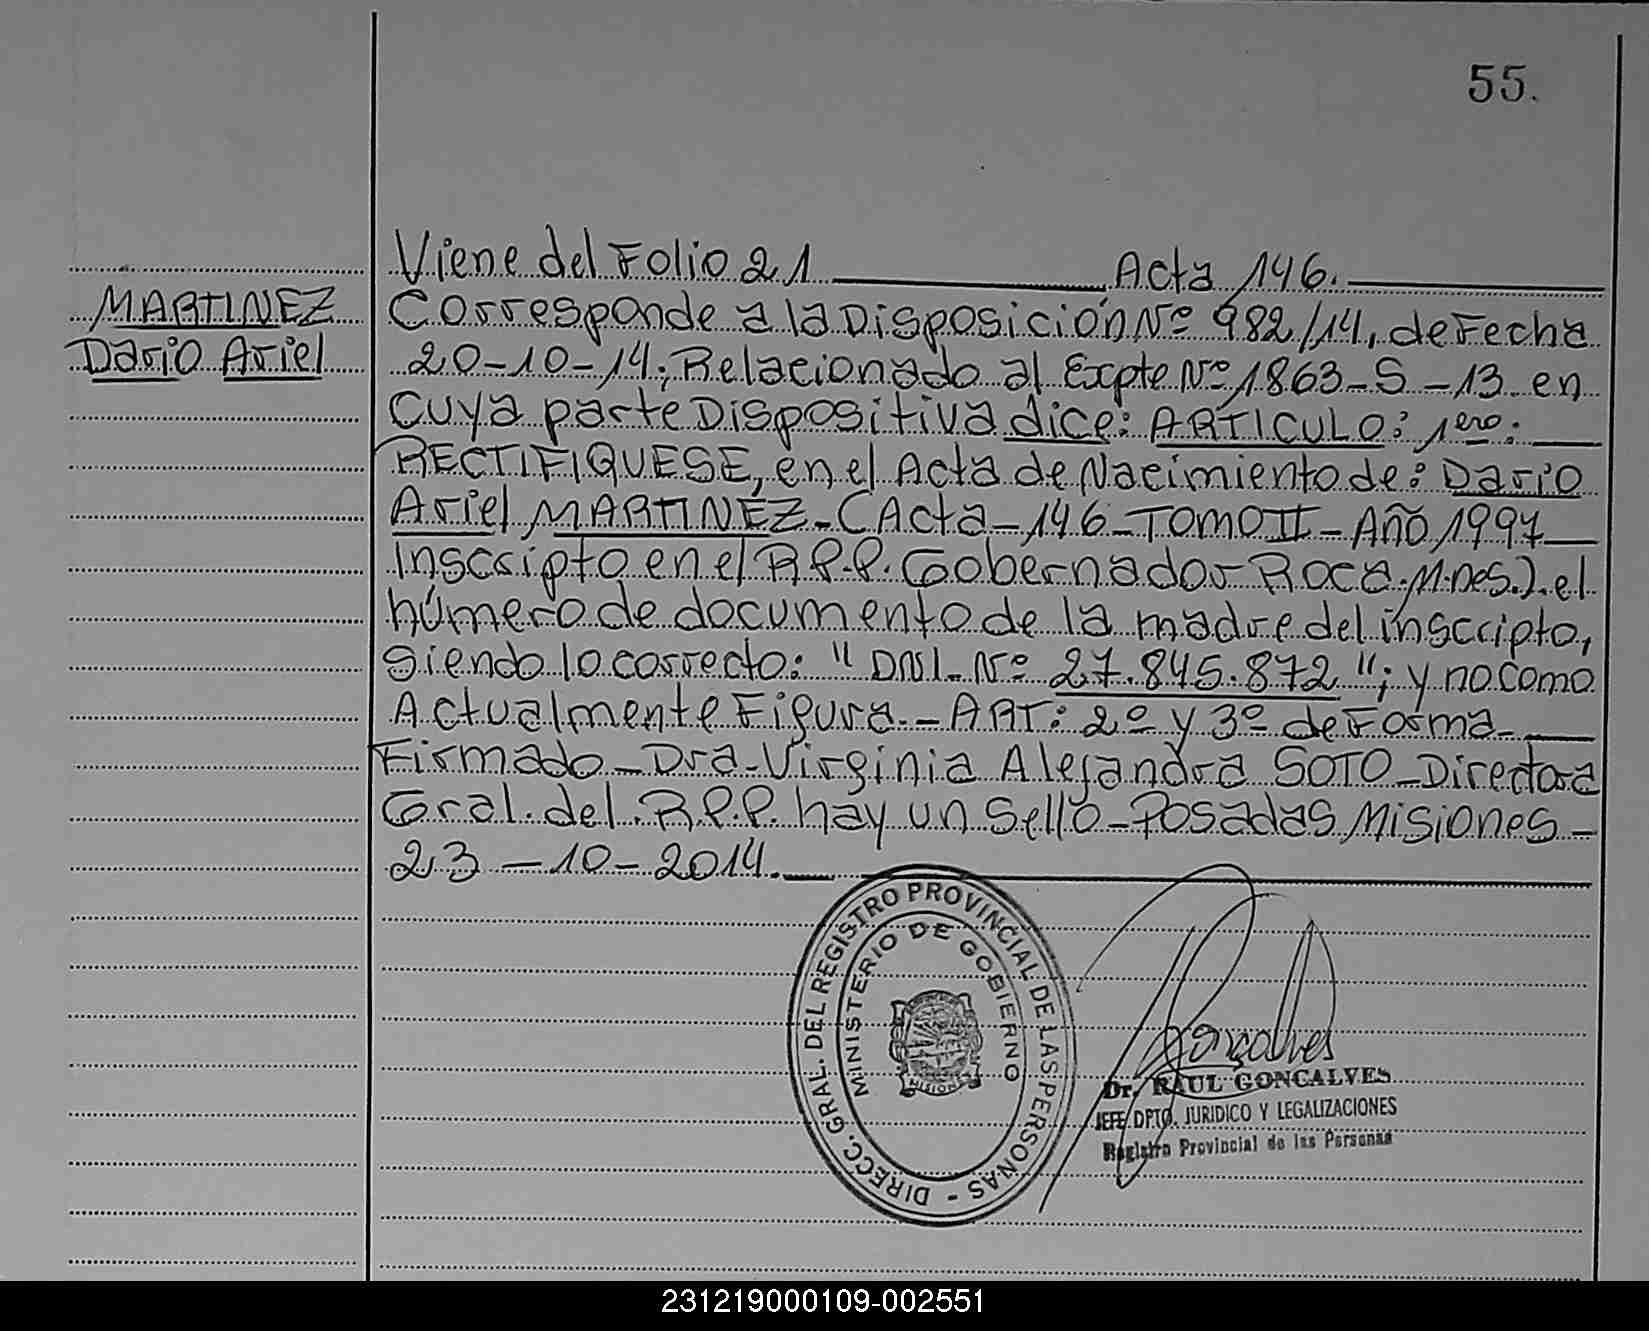 55.
Viene del Folio 21 Acta 146.
MARTINEZ
Dario Ariel
Corresponde a la Disposición Nº 982/14, de Fecha
20-10-14; Relacionado al Expte Nº 1863-S-13 en
Cuya parte Dispositiva dice: ARTICULO: 1ero:
RECTIFIQUESE, en el Acta de Nacimiento de: Dario
Ariel MARTINEZ-(Acta-146-TOMO II-Año 1997
Inscripto en el R.P.P. Gobernador Roca. Mnes.). el
número de documento de la madre del inscripto,
siendo lo correcto: "DNI. Nº 27.845.872"; y no como
Actualmente Figura.-ART: 2º y 3º de Forma-
Firmado-Dra-Virginia Alejandra SOTO-Directora
Gral. del R.P.P. hay un Sello-Posadas Misiones-
23-10-2014.
DIRECC. GRAL. DEL REGISTRO PROVINCIAL DE LAS PERSONAS -
MINISTERIO DE GOBIERNO
MISIONES
Goncalves
Dr. RAUL GONCALVES
JEFE DPTO. JURIDICO Y LEGALIZACIONES
Registro Provincial de las Personas
231219000109-002551